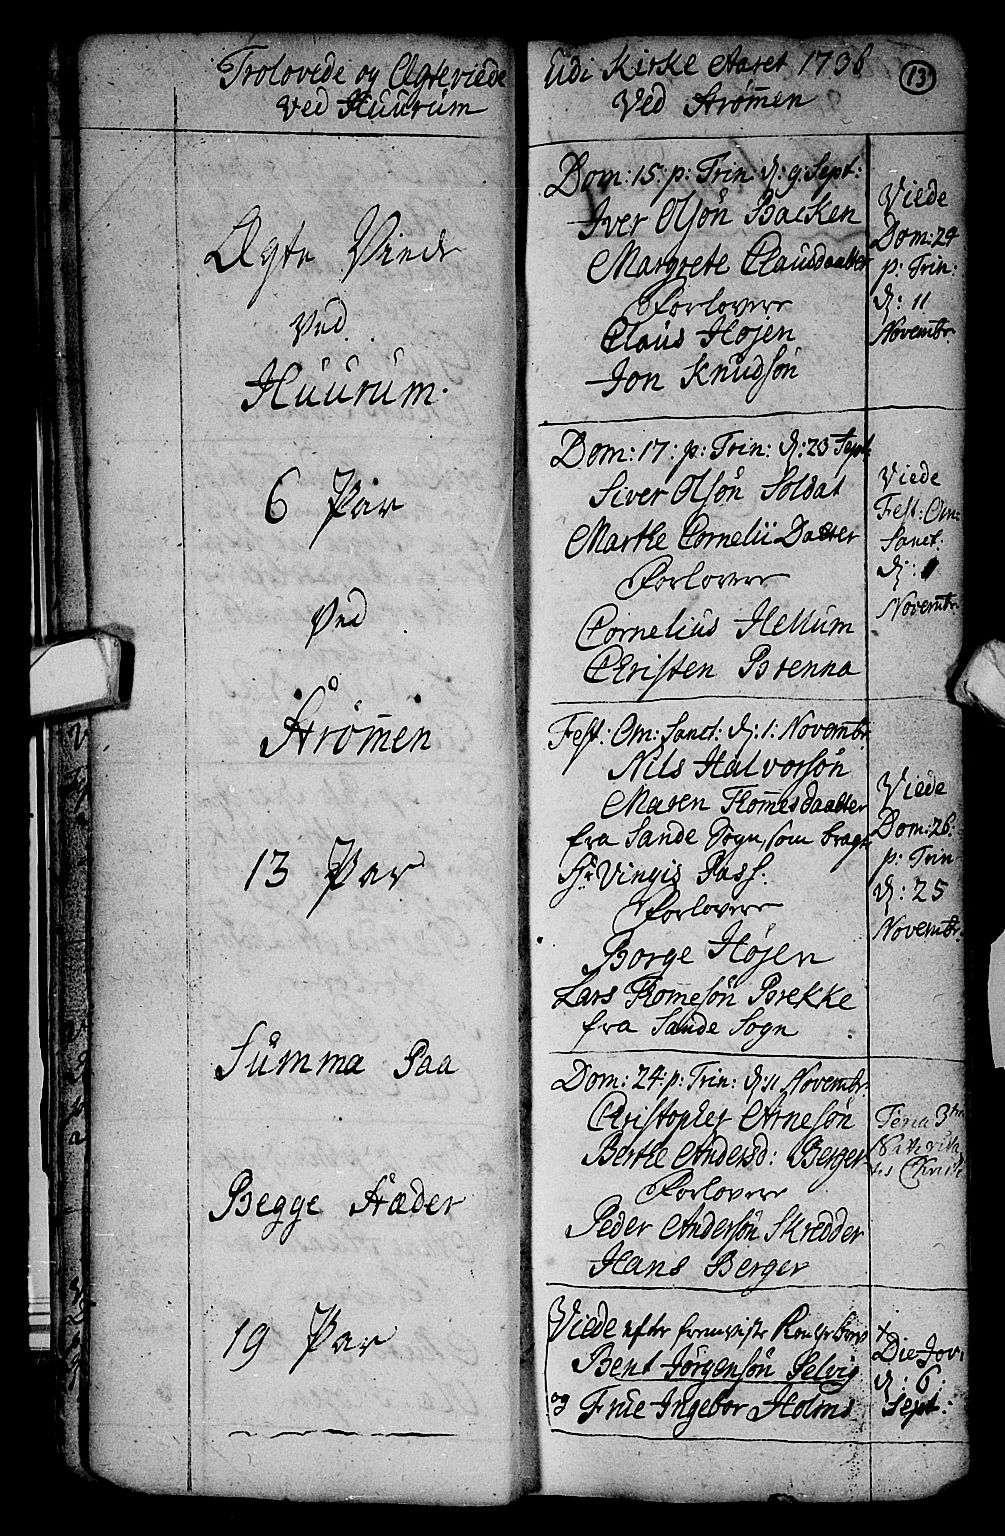 Trolovede og Ægteviede
ved Huurum
Ægte Viede
ved
Huurum.
6 Par
ved
Strømen
13 Par
Summa Paa
Begge Stæder
19 Par
Udi Kirke Aaret 1736
Ved Strømen
13
Dom: 15. p: Trin: d: 9. Sept:
Iver Olsøn Backen
Margrete Clausdaatter
Forlovere
Claus Højen
Jon Knudsøn
Viede
Dom: 24
p: Trin:
d: 11
Novembr.
Dom: 17: p: Trin: d: 23 Sept
Siver Olsøn Soldat
Marthe Cornelii Daatter
Forlovere
Cornelius Hellum
Christen Brenna
Viede
Fest: Om:
Sanct:
d: 1
Novembr
Fest: Om: Sanct: d: 1. Novembr.
Nils Halvorsøn
Maren Thomesdaatter
fra Sande Sogn, som bragte
Hr: Vingis Pass.
Forlovere
Borge Højen
Lars Thomesøn Brekke
fra Sande Sogn
Viede
Dom: 26:
p: Trin
d: 25
Novembr.
Dom: 24: p: Trin: d: 11 Novembr.
Christopher Arnesøn
Berthe Andersd: Berger
Forlovere
Peder Andersøn Skredder
Hans Berger
Feria 3tia
Nativita
tis Christi
Viede efter
Bent Jørgensøn Selvig
og Frue Ingebor Holms
Die Jovis
d: 6:
Sept: